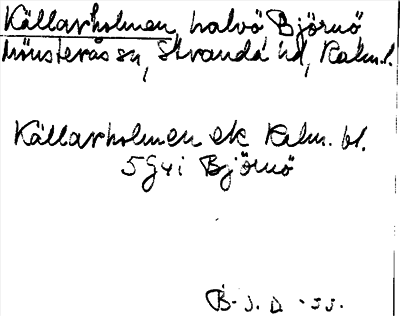 Källarholmen, halvö Björnö
Mönsterås sn, Stranda hd, Kalm. l.
Källarholmen ek Kalm. bl.
5G4i Björnö
B. J. D. -55.